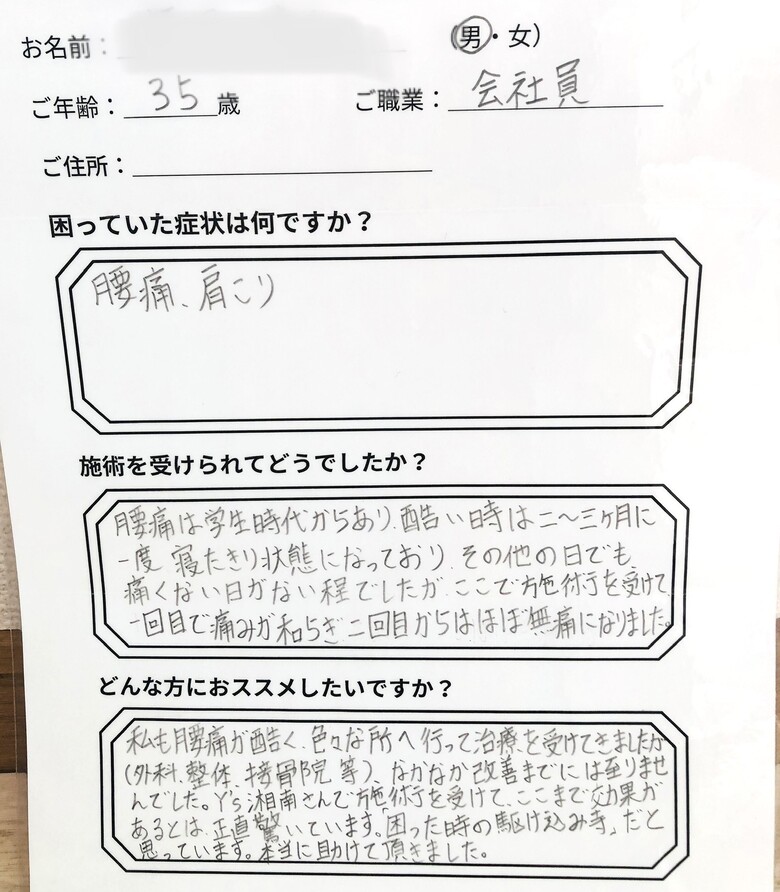 お名前：
（男・女）
ご年齢：35歳
ご職業：会社員
ご住所：
困っていた症状は何ですか？
腰痛、肩こり
施術を受けられてどうでしたか？
腰痛は学生時代からあり、酷い時は二〜三ヶ月に
一度 寝たきり状態になっており、その他の日でも、
痛くない日がない程でしたが、ここで施術を受けて
一回目で痛みが和らぎ二回目からはほぼ無痛になりました。
どんな方におススメしたいですか？
私も腰痛が酷く、色々な所へ行って治療を受けてきましたが
（外科、整体、接骨院 等）、なかなか改善までには至りませ
んでした。Y's湘南さんで施術を受けて、ここまで効果が
あるとは、正直驚いています。「困った時の駆け込み寺」だと
思っています。本当に助けて頂きました。